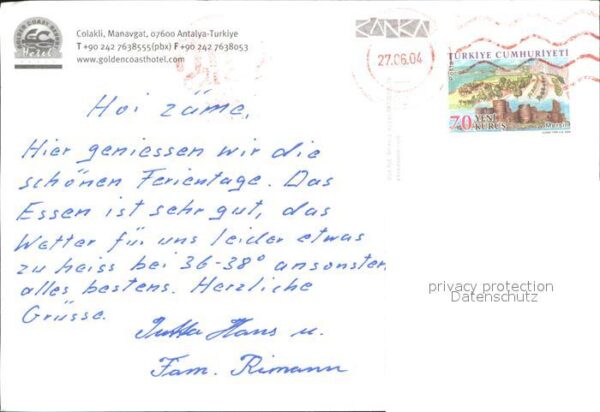 GOLDEN COAST
Hotel
Colakli, Manavgat, 07600 Antalya-Turkiye
T +90 242 7638555(pbx) F +90 242 7638053
www.goldencoasthotel.com
KANKA
27.06.04
TÜRKİYE CUMHURİYETİ
70 YENİ
KURUŞ
Mersin
Hoi zäme,
Hier geniessen wir die
schönen Ferientage. Das
Essen ist sehr gut, das
Wetter für uns leider etwas
zu heiss bei 36-38° ansonsten
alles bestens. Herzliche
Grüsse.
Jutta Hans u.
Fam. Rimann
privacy protection
Datenschutz